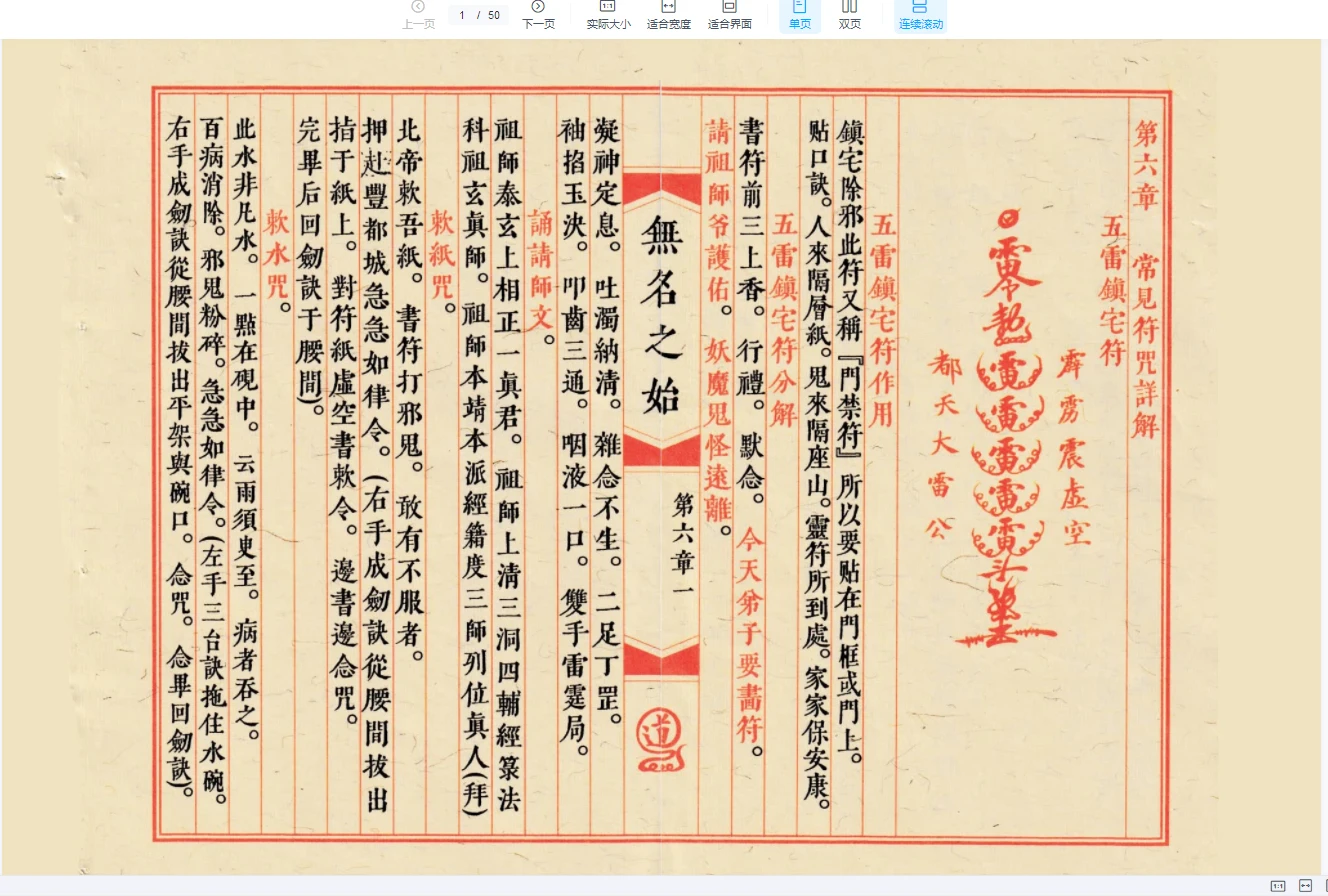 上一页
1 / 50
下一页
实际大小
适合宽度
适合界面
单页
双页
连续滚动
第六章 常見符咒詳解
五雷鎮宅符
霹雳震虛空
雷
雷
雷
雷
雷
都天大雷公
五雷鎮宅符作用
鎮宅除邪此符又稱『門禁符』所以要贴在門框或門上。
贴口訣。人來隔層紙。鬼來隔座山。靈符所到處。家家保安康。
五雷鎮宅符分解
書符前三上香。行禮。默念。今天弟子要畵符。
請祖師爷護佑。妖魔鬼怪遠離。
無名之始
第六章 一
道
凝神定息。吐濁納清。雜念不生。二足丁罡。
袖掐玉決。叩齒三通。咽液一口。雙手雷霆局。
誦請師文。
祖師泰玄上相正一眞君。祖師上清三洞四輔經箓法
科祖玄眞師。祖師本靖本派經籍度三師列位眞人(拜)
敕紙咒。
北帝敕吾紙。書符打邪鬼。敢有不服者。
押赴豐都城急急如律令。(右手成劒訣從腰間拔出
指于紙上。對符紙虛空書敕令。邊書邊念咒。
完畢后回劒訣于腰間)。
敕水咒。
此水非凡水。一點在硯中。云雨須臾至。病者吞之。
百病消除。邪鬼粉碎。急急如律令。(左手三台訣拖住水碗。
右手成劒訣從腰間拔出平架與碗口。念咒。念畢回劒訣)。
1:1